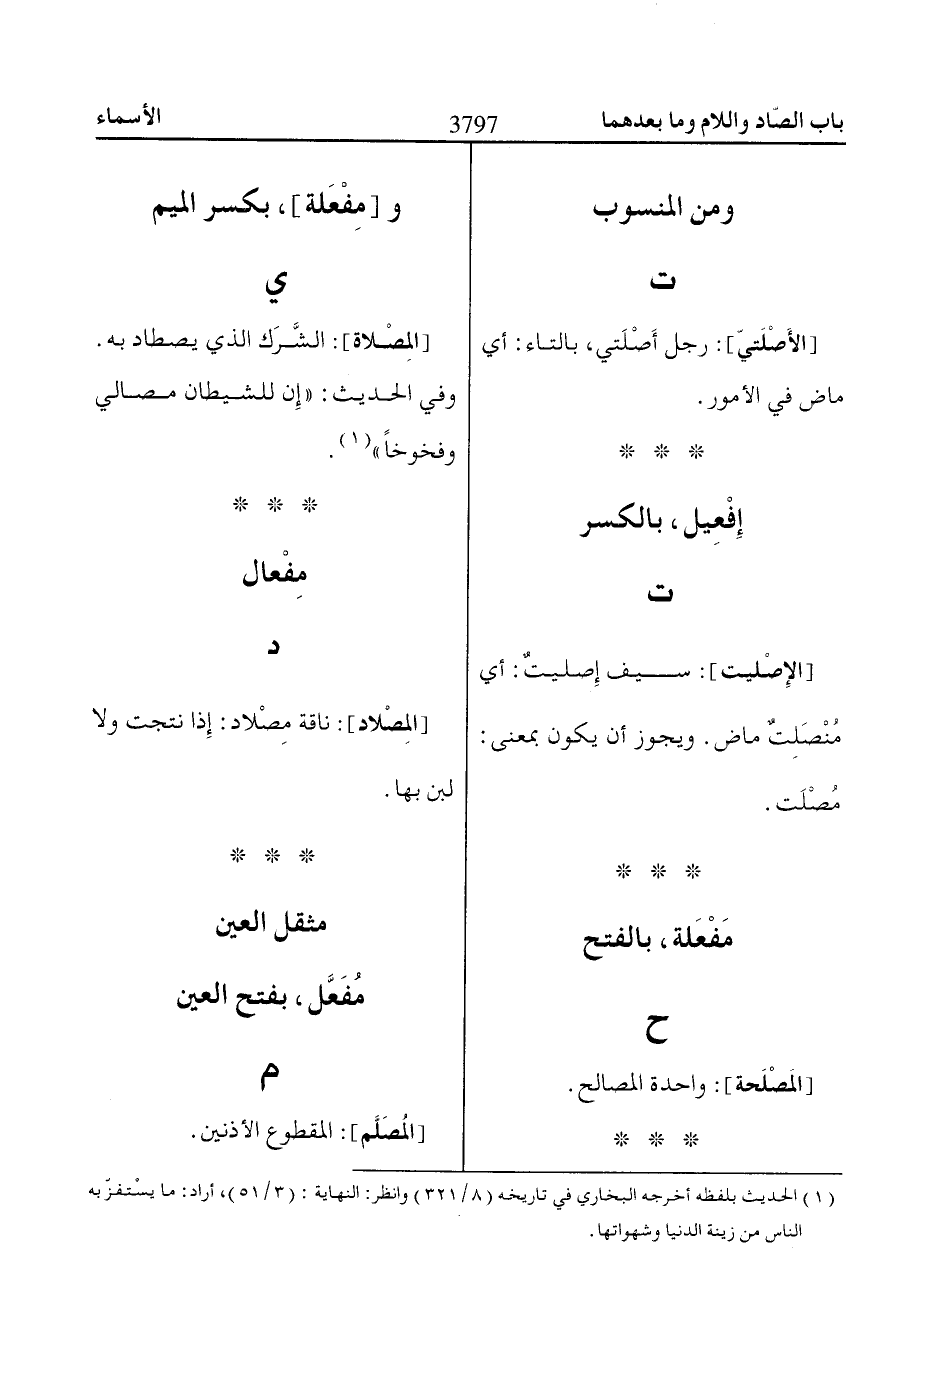 باب الصّاد واللام وما بعدهما 3797 الأسماء
ومن المنسوب
ت
[الأَصْلَتيّ]: رجل أَصْلَتي، بالتاء: أي
ماض في الأمور.
* * *
إِفْعِيل، بالكسر
ت
[الإِصْليت]: سيف إِصليتٌ: أي
مُنْصَلِتٌ ماض. ويجوز أن يكون بمعنى:
مُصْلَت.
* * *
مَفْعَلة، بالفتح
ح
[المَصْلَحة]: واحدة المصالح.
* * *
و [مِفْعَلة]، بكسر الميم
ي
[المِصْلاة]: الشَّرَك الذي يصطاد به.
وفي الحديث: «إِن للشيطان مصالي
وفخوخاً»(١).
* * *
مِفْعال
د
[المِصْلاد]: ناقة مِصْلاد: إِذا نتجت ولا
لبن بها.
* * *
مثقل العين
مُفَعَّل، بفتح العين
م
[المُصَلَّم]: المقطوع الأذنين.
(١) الحديث بلفظه أخرجه البخاري في تاريخه (٣٢١/٨) وانظر: النهاية : (٥١/٣)، أراد: ما يسْتفزّ به
الناس من زينة الدنيا وشهواتها.